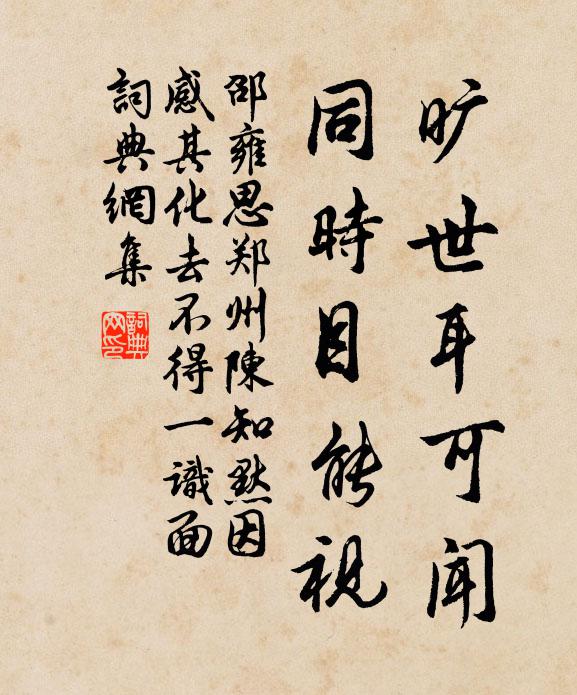 旷世耳可闻
同時目能視
邵雍思郑州陳知默因
感其化去不得一識面
詞典網集
詞典網印